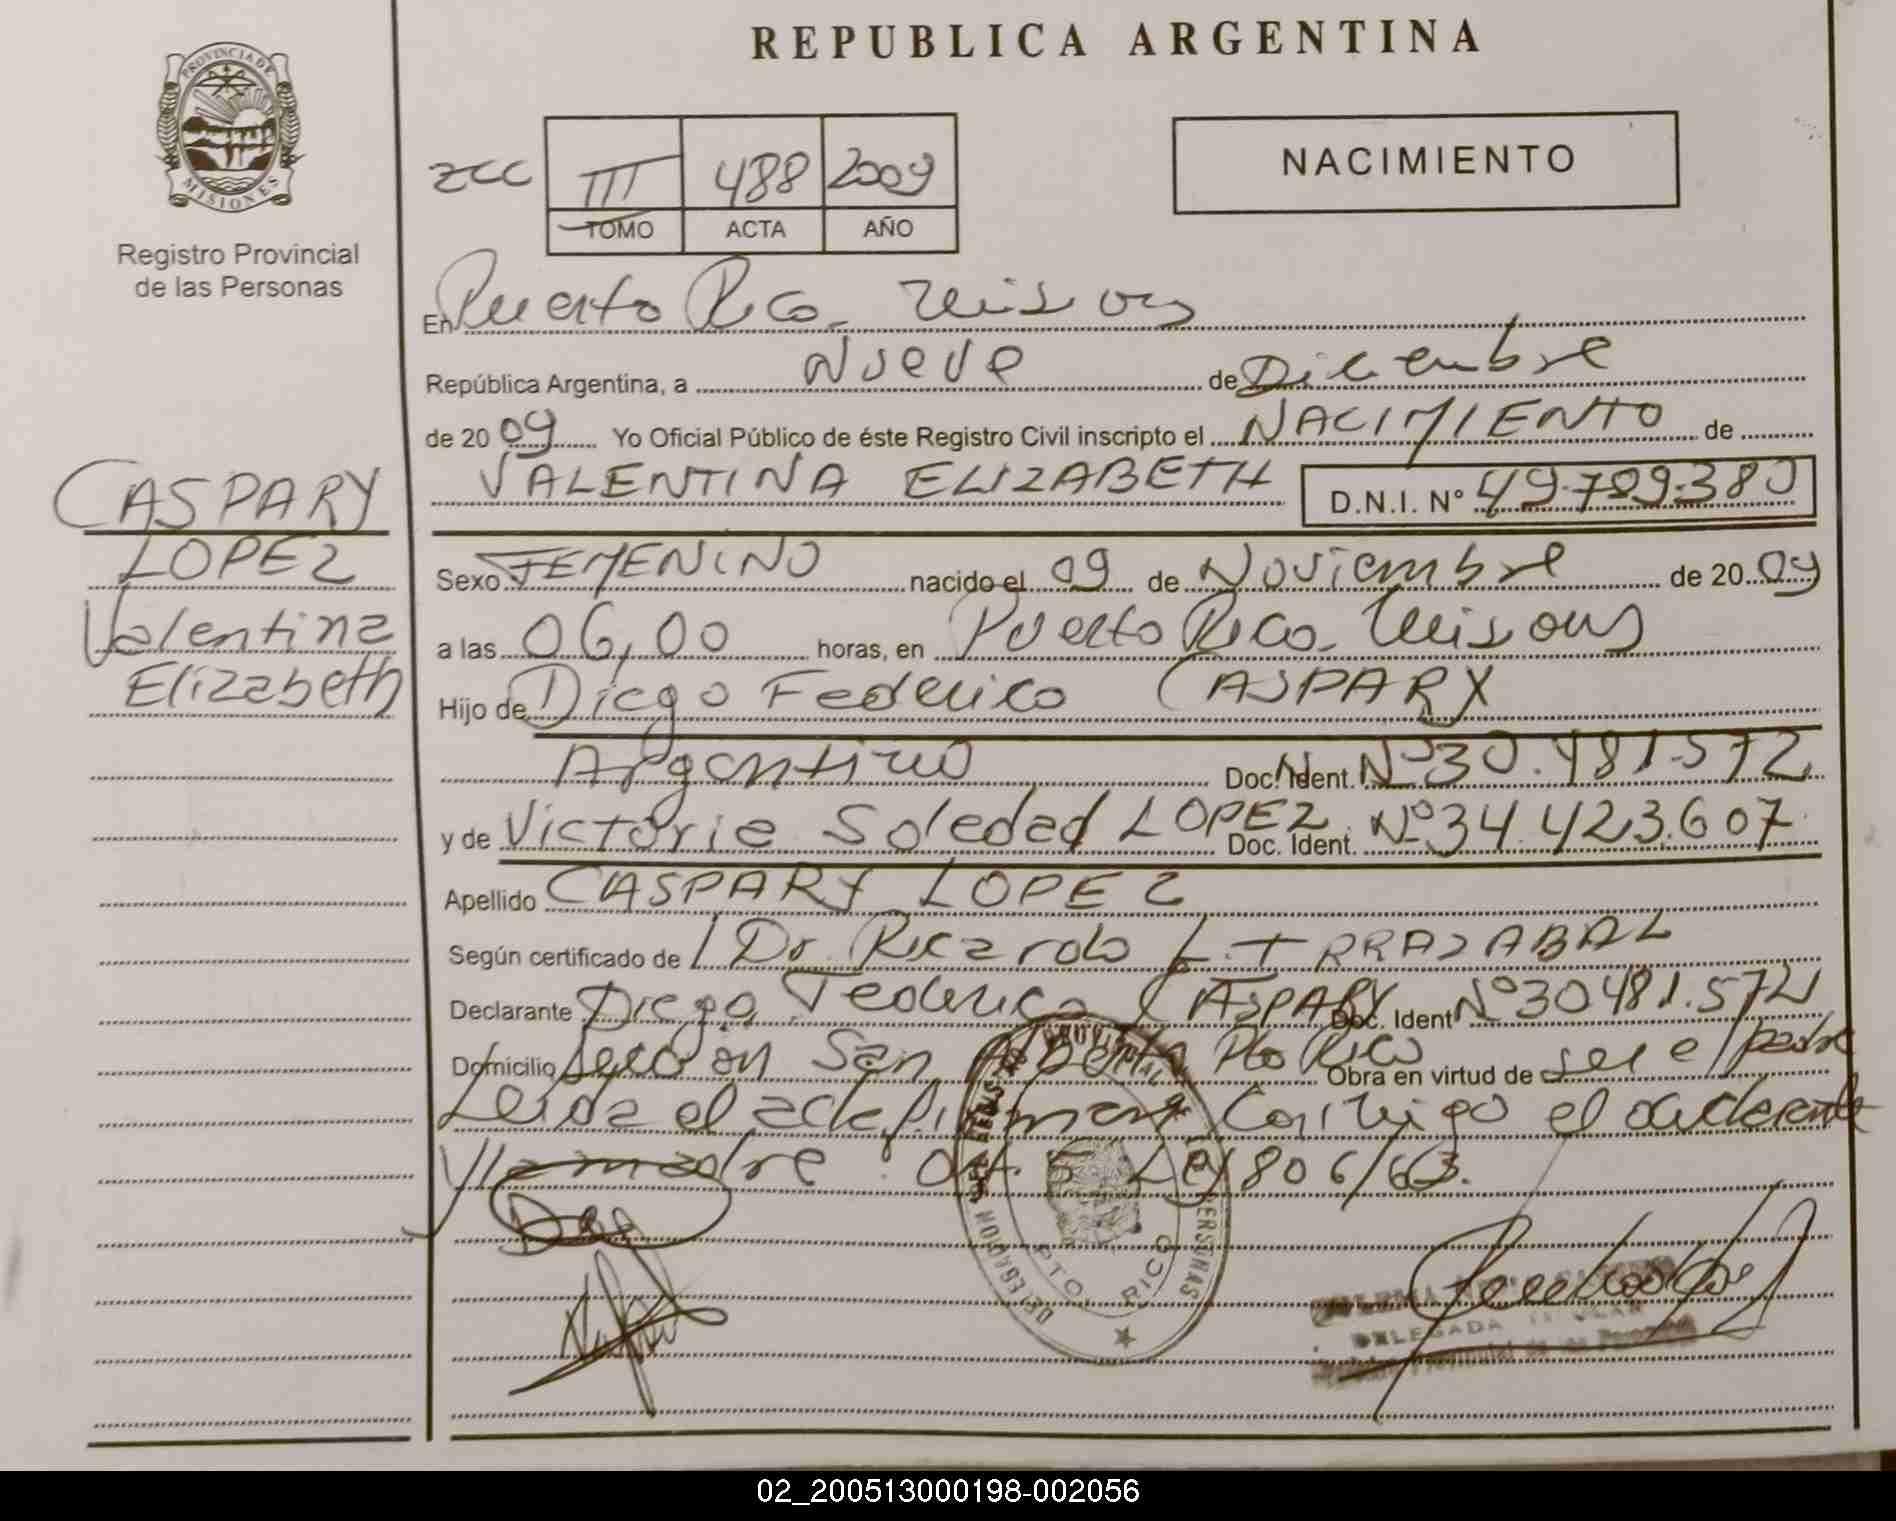 PROVINCIA DE
MISIONES
Registro Provincial
de las Personas
CASPARY
LOPEZ
Valentina
Elizabeth
REPUBLICA ARGENTINA
zcc III 488 2009
TOMO ACTA AÑO
NACIMIENTO
En Puerto Rico - Misiones
República Argentina, a Nueve de Diciembre
de 20 09 Yo Oficial Público de éste Registro Civil inscripto el NACIMIENTO de
VALENTINA ELIZABETH D.N.I. Nº 49.789.380
Sexo FEMENINO nacido el 09 de Noviembre de 20 09
a las 06,00 horas, en Puerto Rico - Misiones
Hijo de Diego Federico CASPARY
Argentino Doc. Ident. Nº 30.481.572
y de Victoria Soledad LOPEZ Doc. Ident. Nº 34.423.607
Apellido CASPARY LOPEZ
Según certificado de Dr. Ricardo L. IRRAZABAL
Declarante Diego Federico CASPARY Doc. Ident Nº 30481.572
Domicilio Sección San Pto Rico Obra en virtud de ser el padre
Leida el acta firman conmigo el declarante
y la madre. 806/63.
DELEGACION
PERSONAS
PTO. RICO
DELEGADA TITULAR
02_200513000198-002056